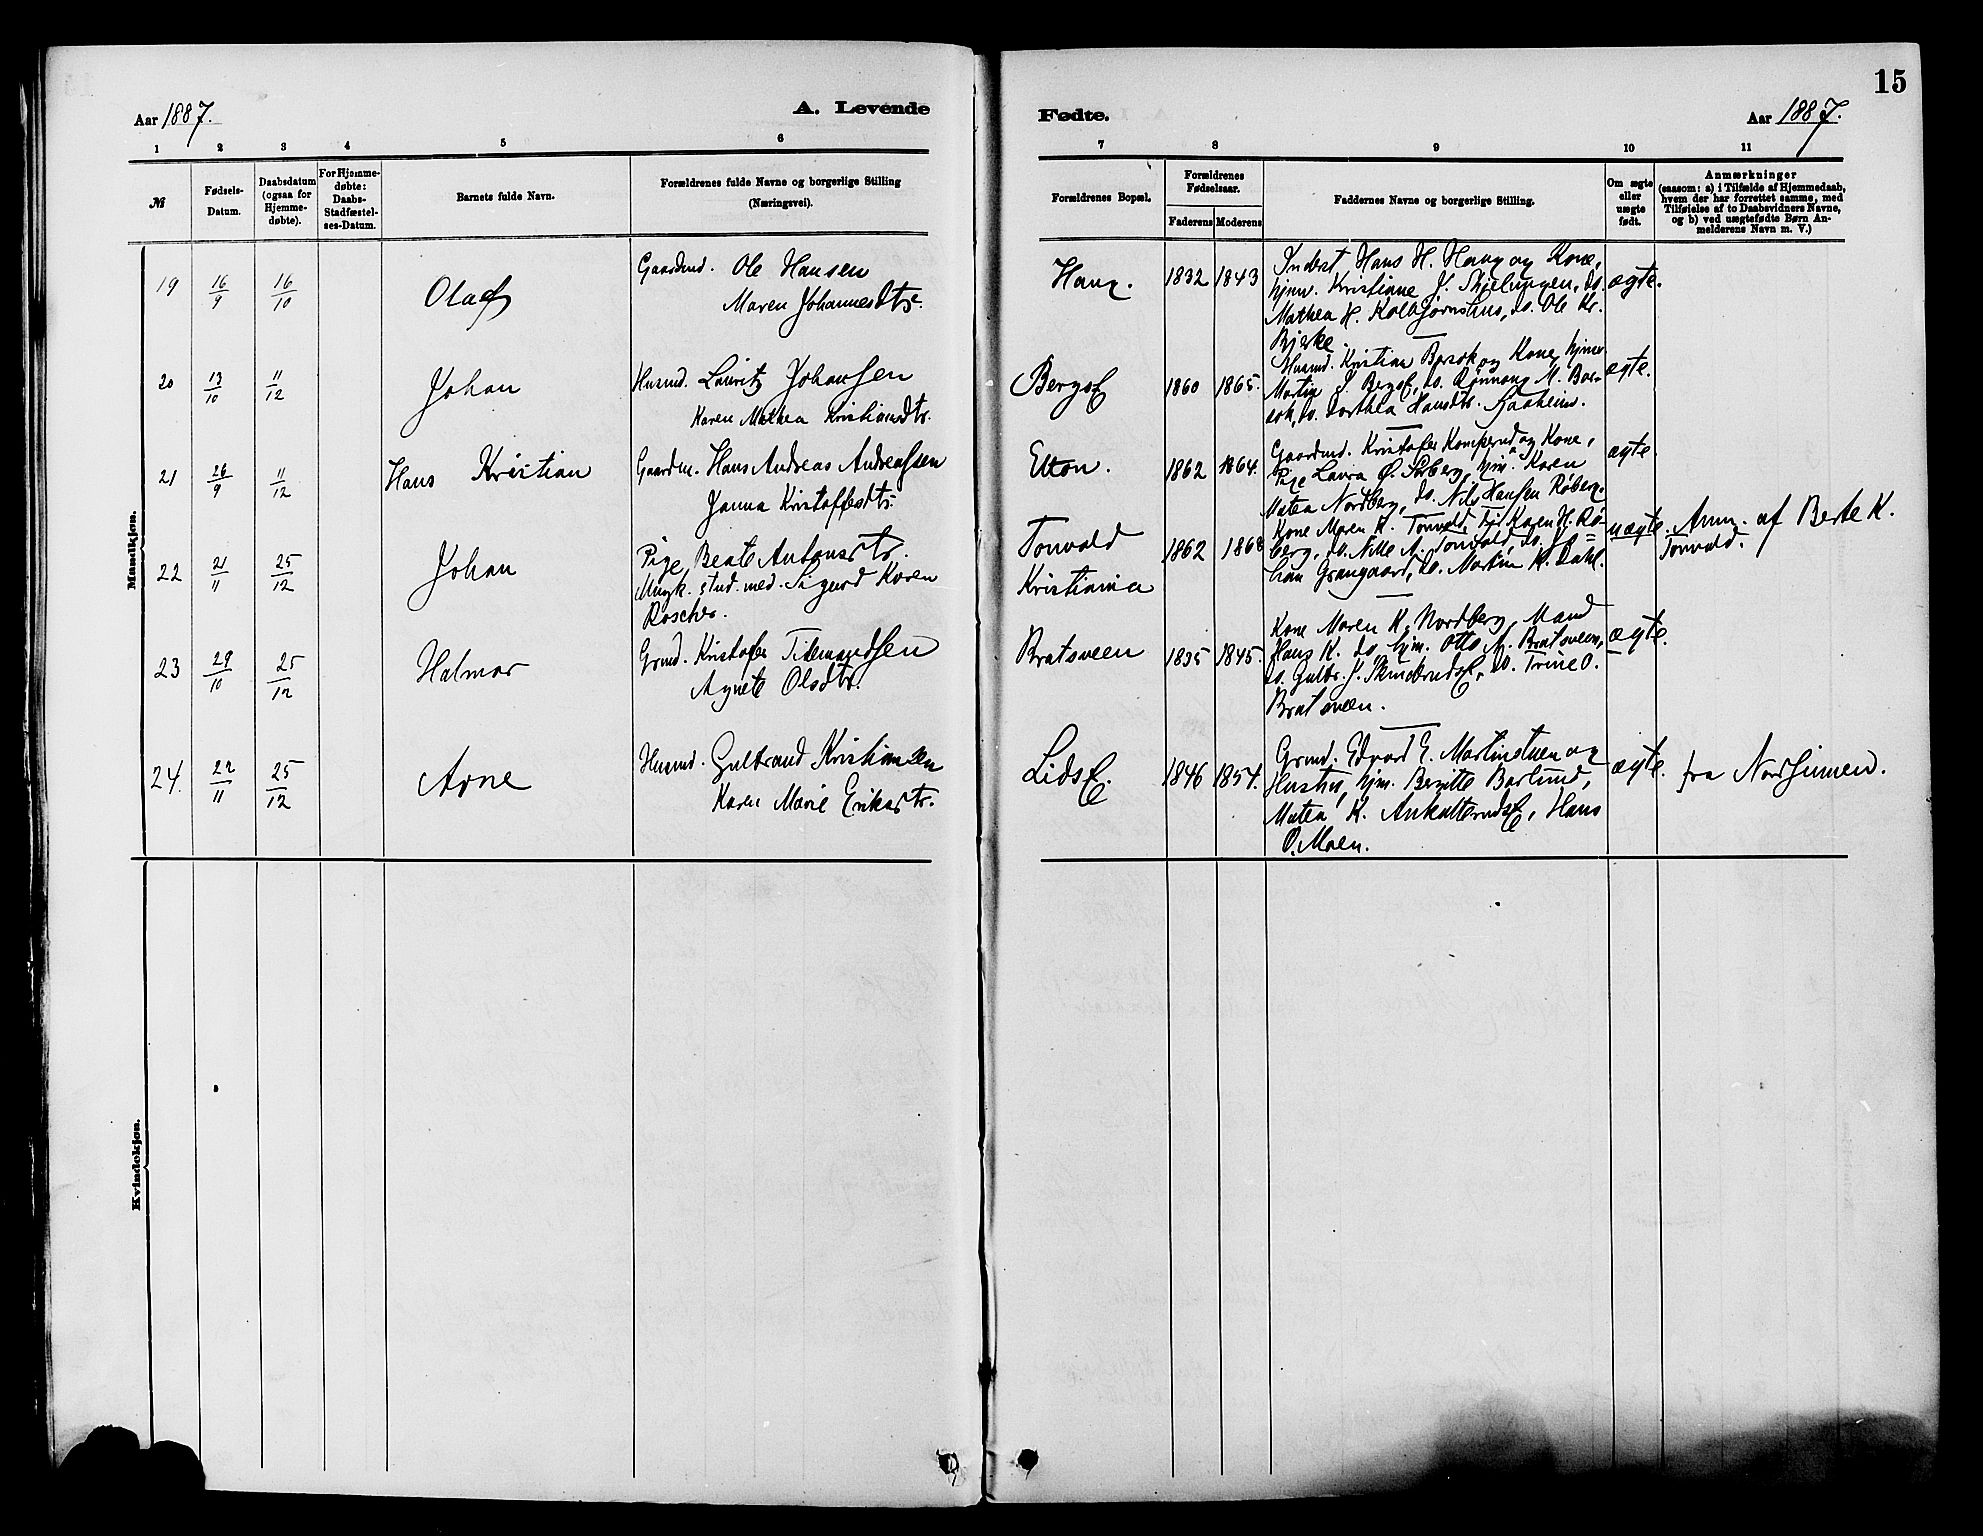 15
Aar 1887.
A. Levende
Fødte.
Aar 1887.
1 2 3 4 5 6
7 8 9 10 11
№
Fødsels-
Datum.
Daabsdatum
(ogsaa for
Hjemme-
døbte).
For Hjemme-
døbte:
Daabs-
Stadfæstel-
ses-Datum.
Barnets fulde Navn.
Forældrenes fulde Navne og borgerlige Stilling
(Næringsvei).
Forældrenes Bopæl.
Forældrenes
Fødselsaar.
Faderens Moderens
Faddernes Navne og borgerlige Stilling.
Om ægte
eller
uægte
født.
Anmærkninger
(saasom: a) i Tilfælde af Hjemmedaab,
hvem der har forrettet samme, med
Tilføielse af to Daabsvidners Navne,
og b) ved uægtefødte Børn An-
melderens Navn m. V.)
Mandkjøn.
19 16/9 16/10 Olaf
Gaardmd. Ole Hansen
Maren Johannesdtr.
Haug. 1832 1843
Inderst Hans H. Haug og Kone,
hjmv. Kristiane J. do.
Mathea H. Kolbjørnshus, do. Ole Kr.
Bjerke.
ægte.
20 13/10 11/12 Johan
Husmd. Lauritz Johansen
Karen Mathea Kristiansdtr.
Bergsf 1860 1865.
Husmd. Kristian og Kone, hjmv.
Martin J. Bergsf, do. Rønnaug M.
do. Dorthea Hansdtr.
ægte.
21 26/9 11/12 Hans Kristian
Gaardm. Hans Andreas Andreassen
Janna Kristoffersdtr.
Elton. 1862 1864.
Gaardmd. Kristofer Kompernd og Kone,
Pige Laura Ø. hjm. Karen
Matea Nordberg, do. Nils Hansen Røberg.
ægte.
22 21/11 25/12 Johan
Pige Beate Antonsdtr.
stud. med. Sigurd Koren
Roscher.
Tonvold
Kristiania
1862 1868
Kone Maren K. Tonvold, Karen H. Rø-
berg, do. Nille A. Tonvold, do. Jo=
han Grangaard, do. Martin K. Dahl.
uægte.
Anm. af Berte K.
Tonvold.
23 29/10 25/12 Halmar
Grmd. Kristofer Tidemandsen
Agnete Olsdtr.
Bratsveen 1835 1845.
Kone Maren K. Nordberg, Mand
Hans K. do, hjm. Otto A. Bratsveen,
do. Gulbr. J. do. Trine O.
Bratsveen.
ægte.
24. 22/11 25/12 Arne
Husmd. Gulbrand Kristiansen
Karen Marie Eriksdtr.
Lidsf. 1846 1854.
Grmd. Edvard E. Martinstuen og
Hustru, hjm. Bergitte Barlund,
Matea K. Hans
O. Moen.
ægte. fra Nordsinnen.
Kvindekjøn.